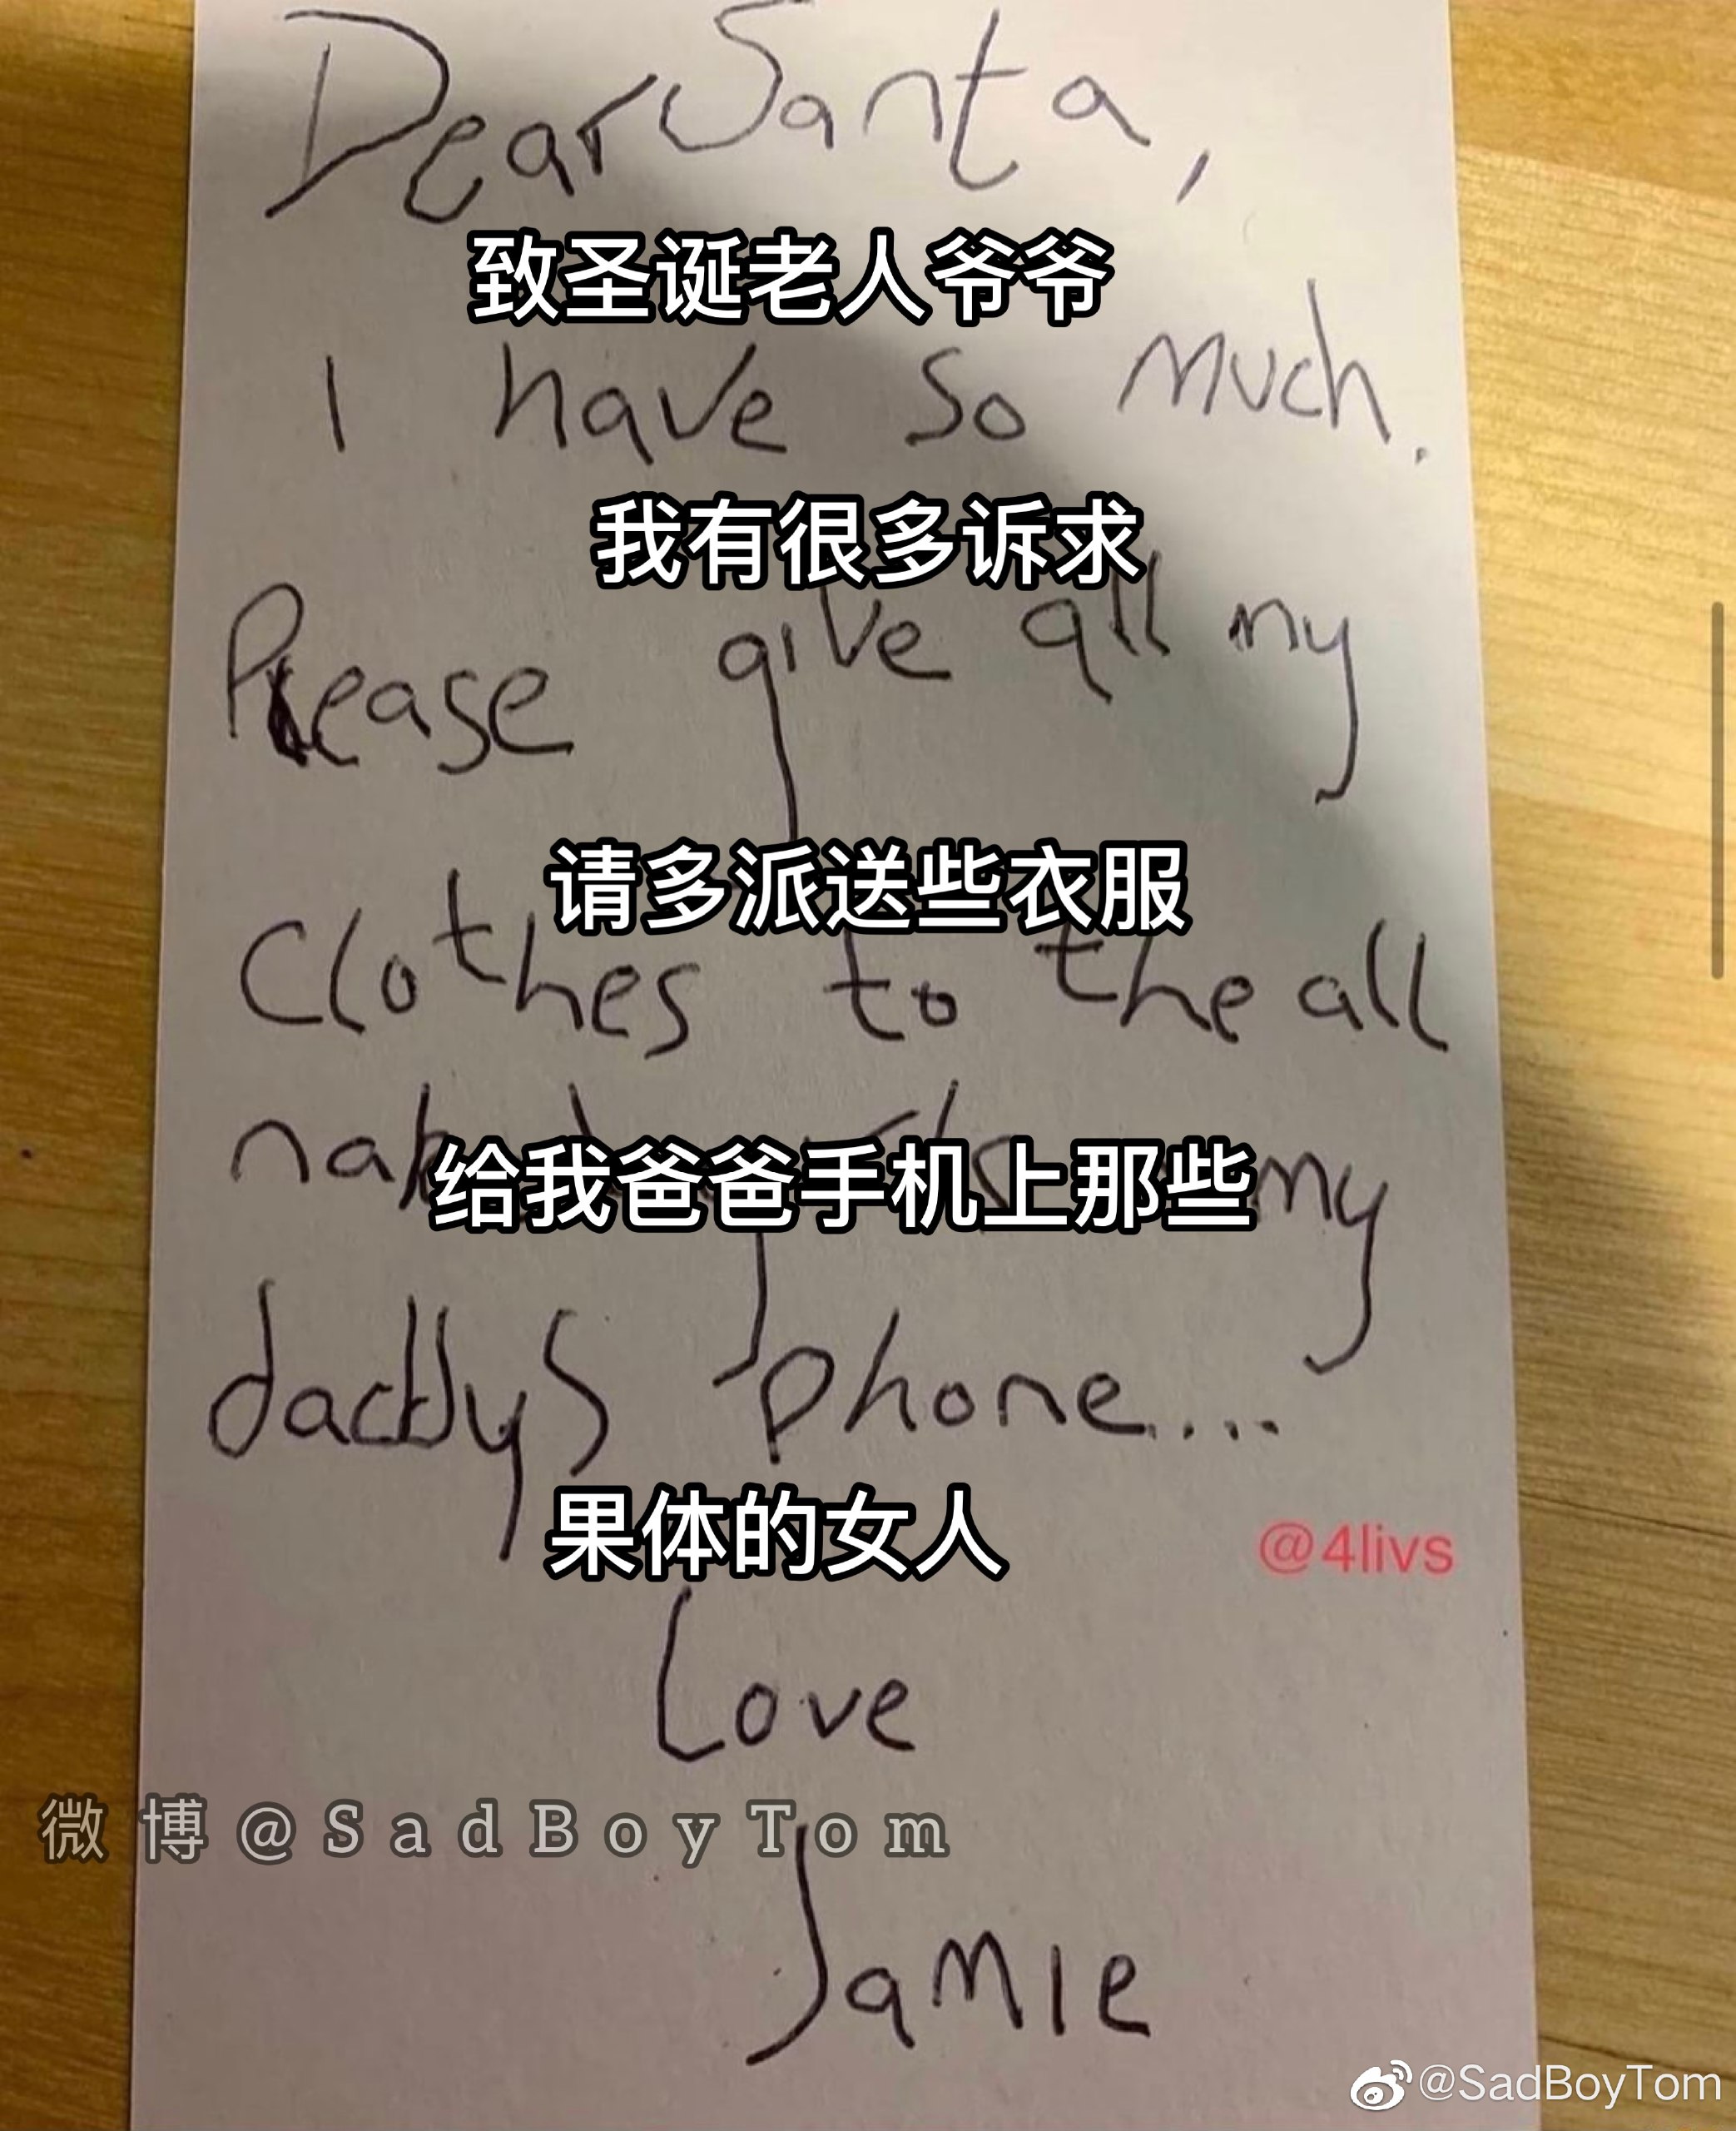 Dear Santa,
致圣诞老人爷爷
I have so much.
我有很多诉求
Please give all my
请多派送些衣服
Clothes to the all
给我爸爸手机上那些
my
daddys phone....
果体的女人
@4livs
Love
微博@SadBoyTom
Jamie
@SadBoyTom